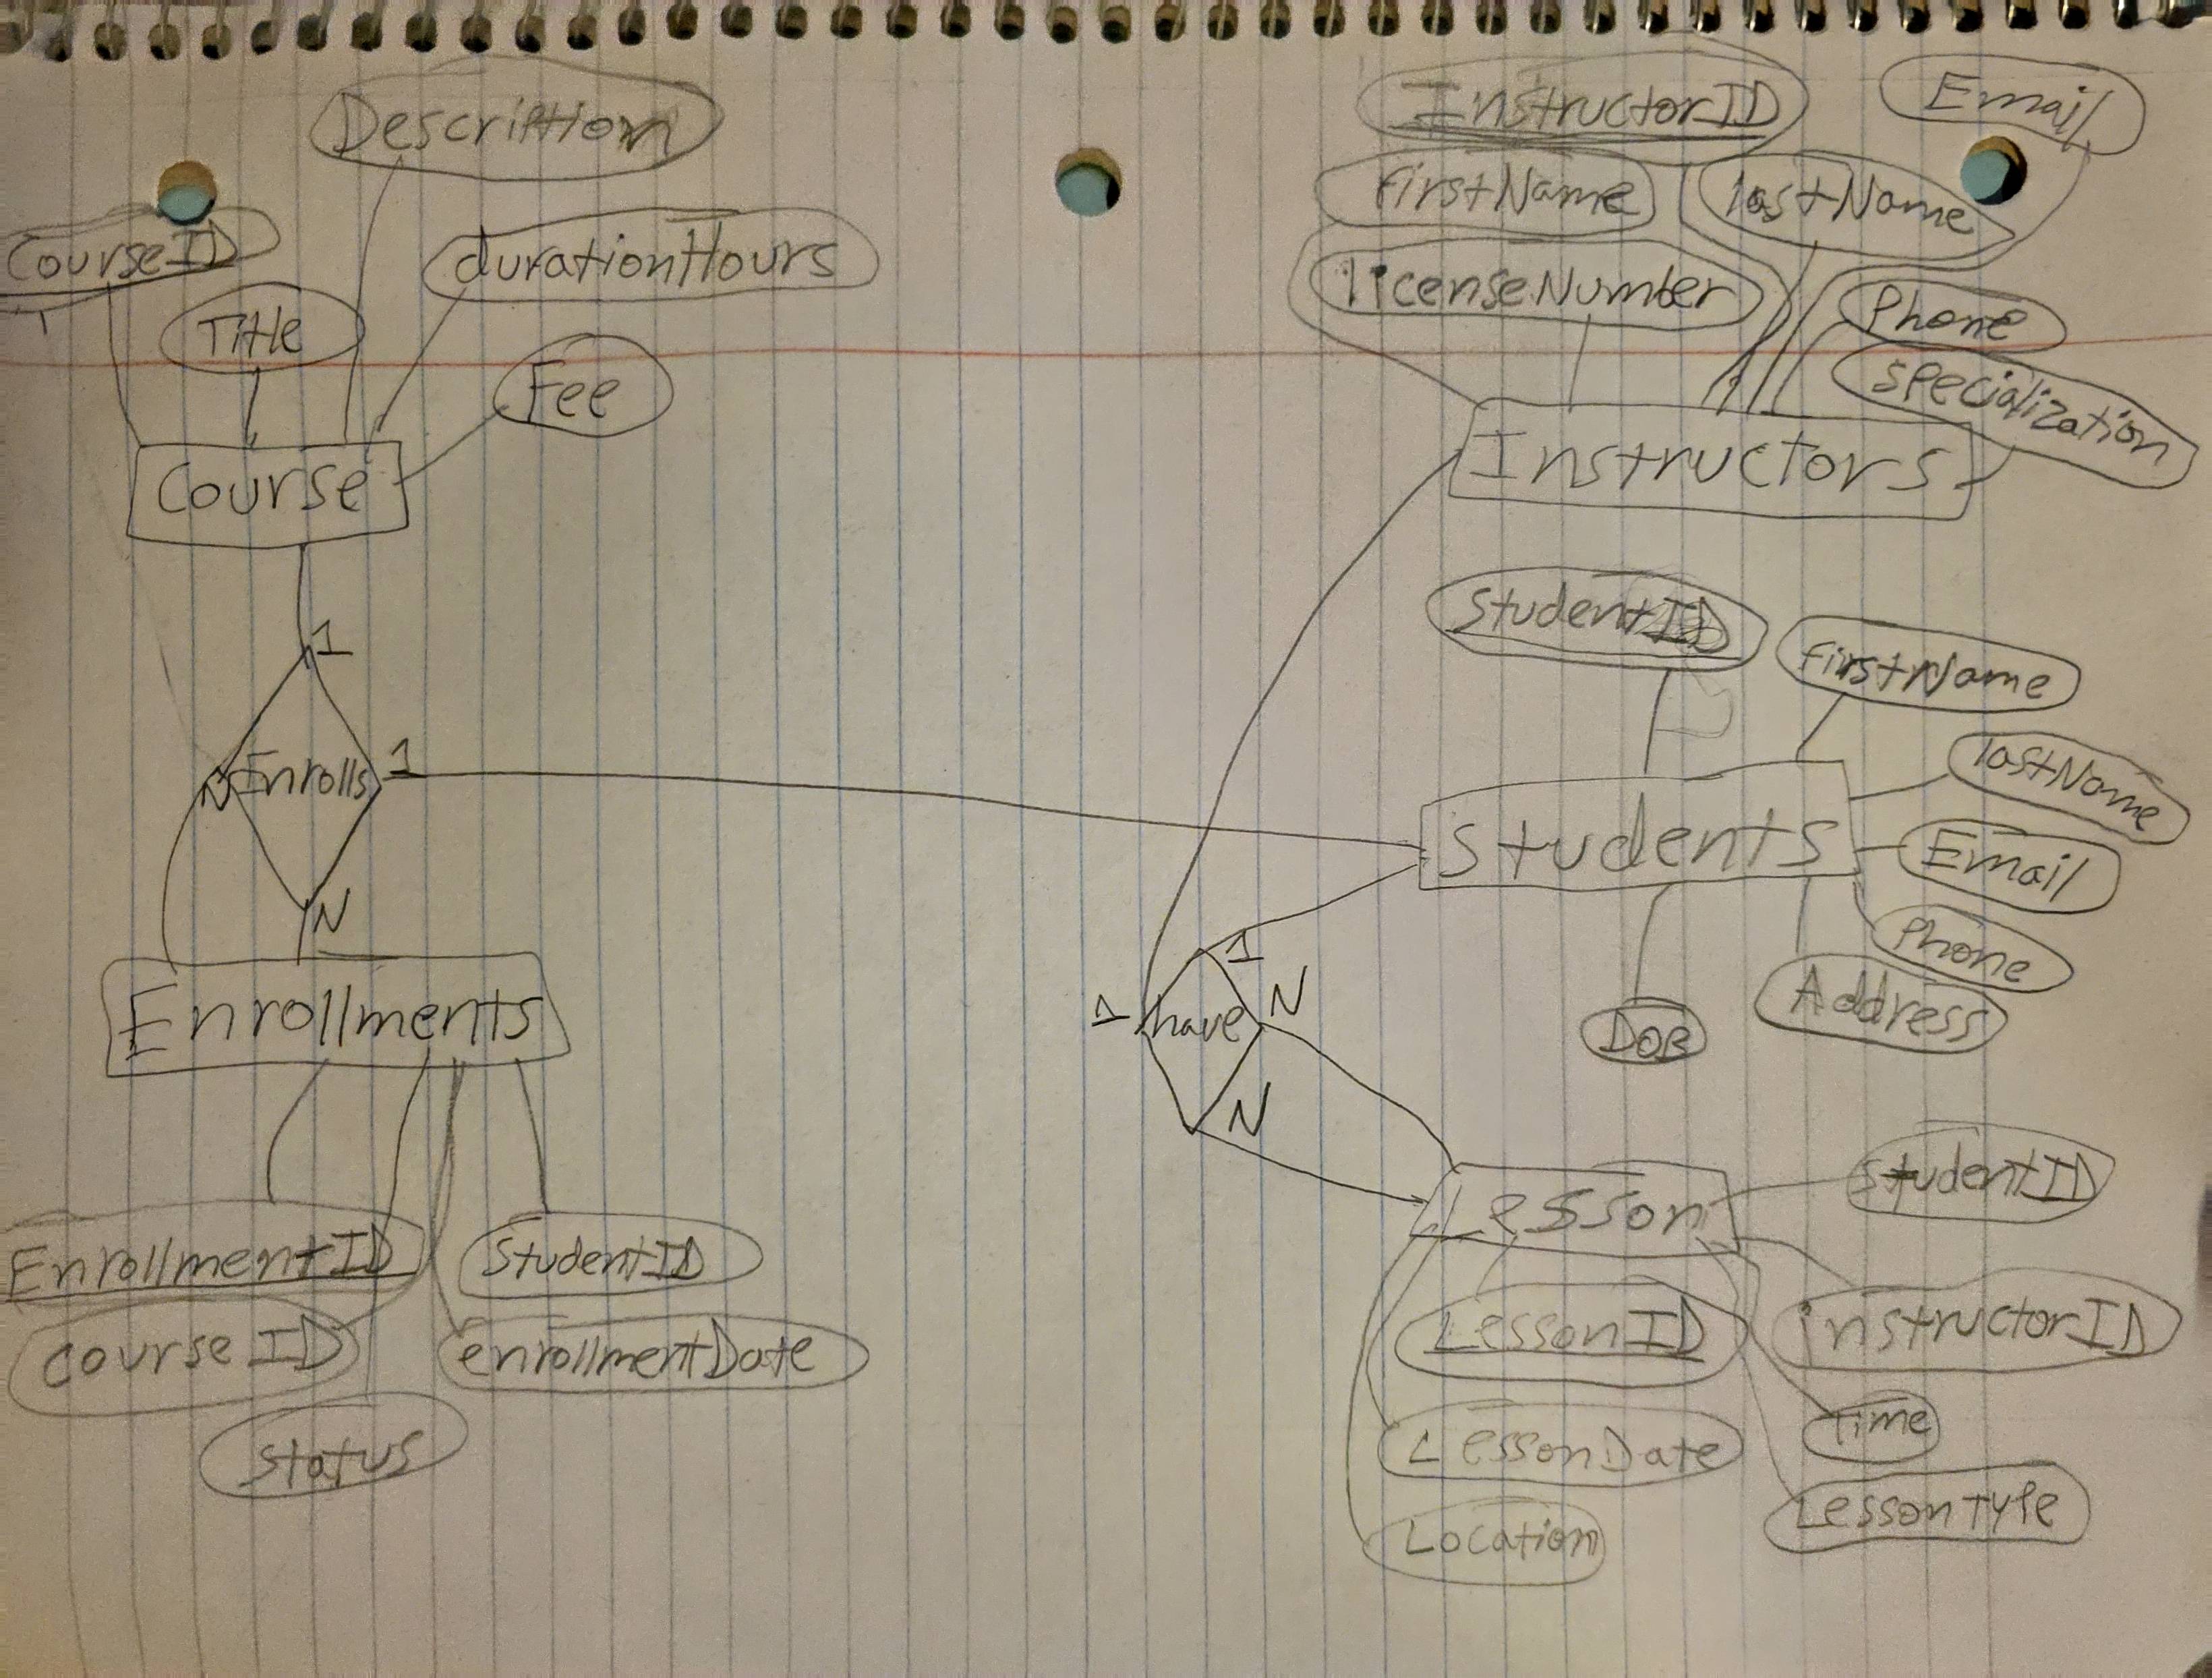 Description
CourseID
Title
durationHours
Fee
Course
1
Enrolls
1
N
N
Enrollments
EnrollmentID
StudentID
courseID
enrollmentDate
status
InstructorID
Email
firstName
lastName
licenseNumber
Phone
specialization
Instructors
StudentID
firstName
lastName
Students
Email
Phone
Address
DOB
1
1
have
N
N
Lesson
studentID
LessonID
instructorID
LessonDate
Time
Location
LessonType